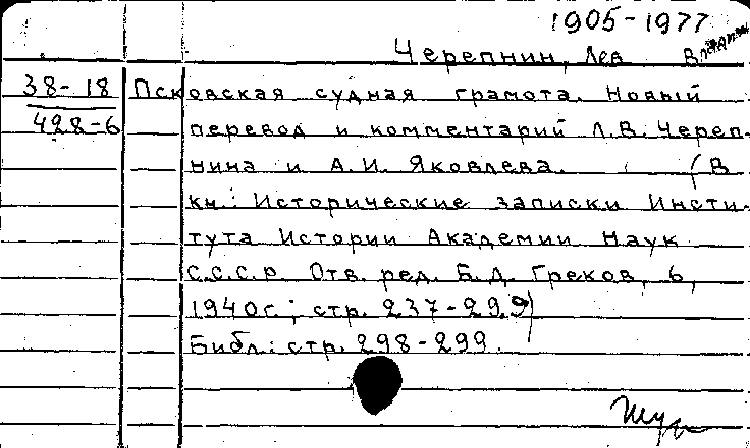 1905-1977
Черепнин, Лев
38-18 Псковская судная грамота. Новый
428-6 перевод и комментарий Л.В. Череп-
нина и А.И. Яковлева. (В
кн.: Исторические записки Инсти-
тута Истории Академии Наук
С.С.С.Р. Отв. ред. Б.Д. Греков, 6,
1940г.; стр. 237-299)
Библ.: стр. 298-299.